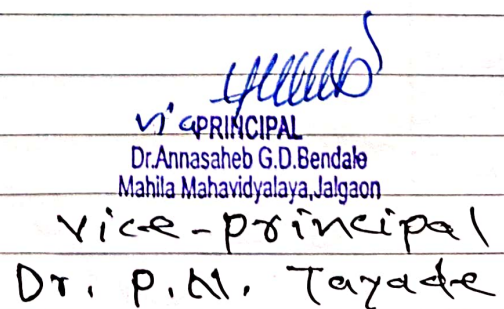 Vice PRINCIPAL
Dr.Annasaheb G.D.Bendale
Mahila Mahavidyalaya,Jalgaon
vice-principal
Dr. P.M. Tayade